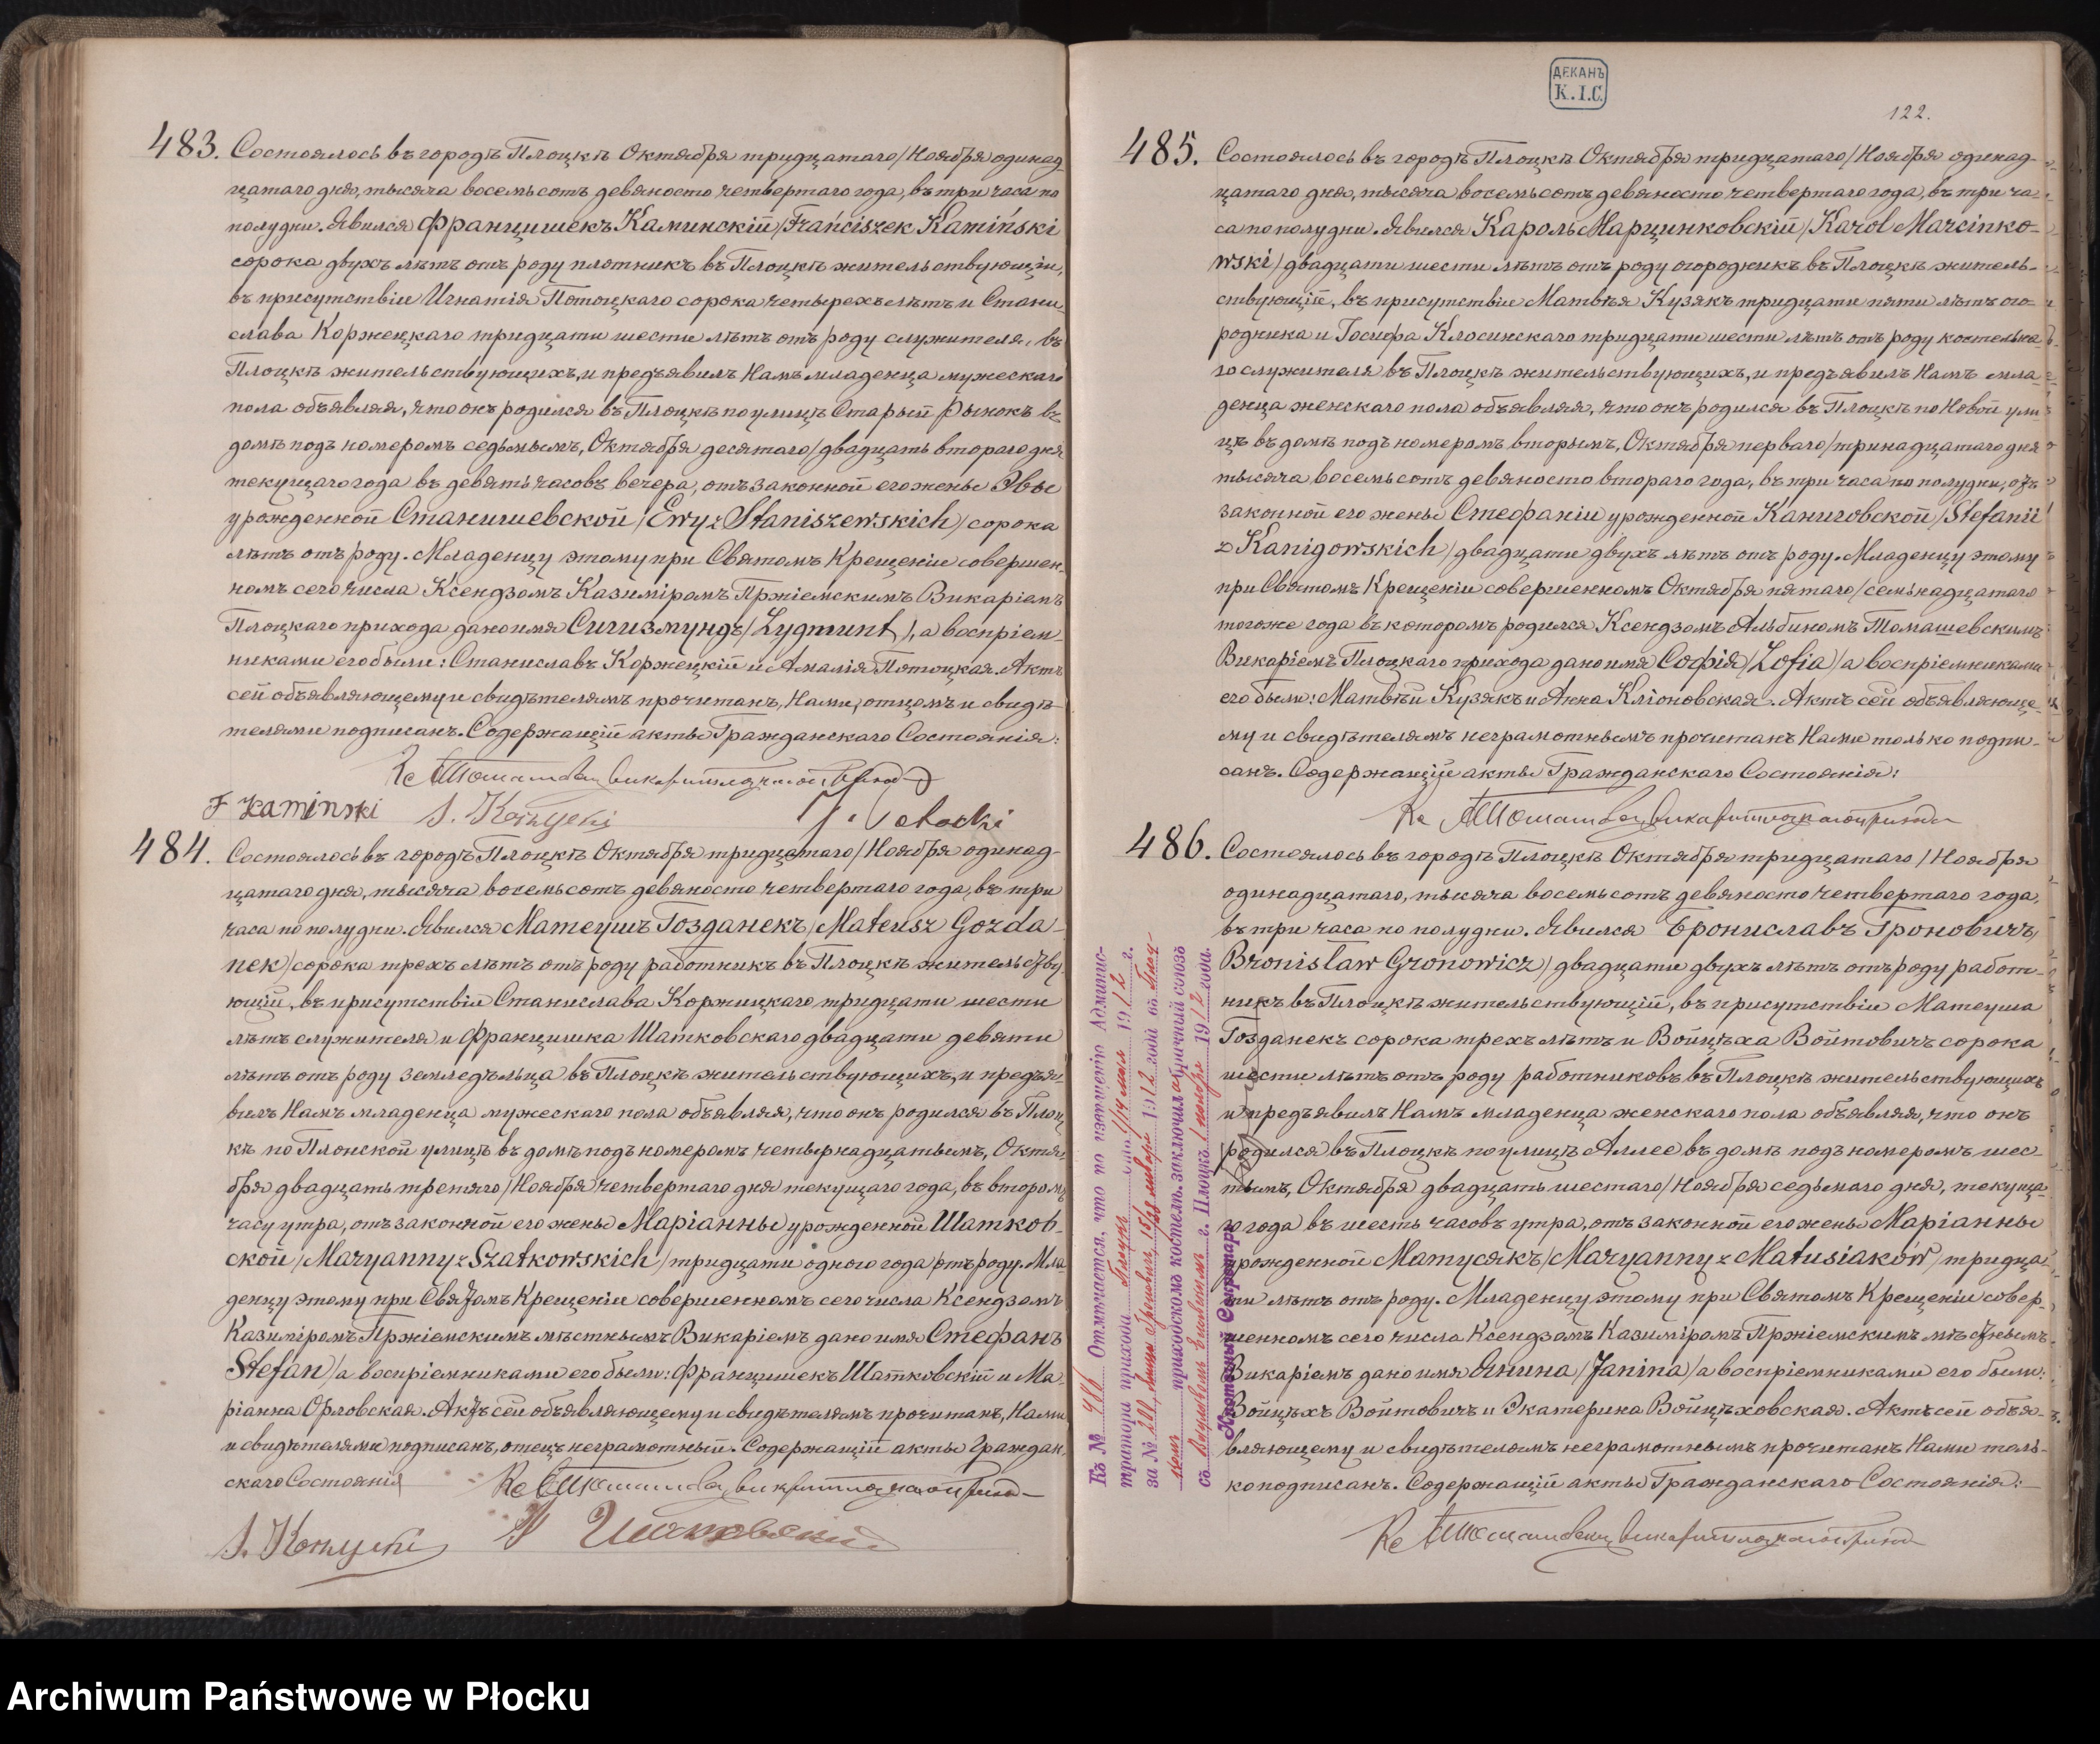 483. Состоялось въ городѣ Плоцкѣ Октября тридцатаго/Ноября одинад-
цатаго дня, тысяча восемьсотъ девяносто четвертаго года, въ три часа по
полудни. Явился Францишекъ Каминскій /Franciszek Kamiński
сорока двухъ лѣтъ отъ роду плотникъ въ Плоцкѣ жительствующій,
въ присутствіи Игнатія Потоцкаго сорока четырехъ лѣтъ и Стани-
слава Коржецкаго тридцати шести лѣтъ отъ роду служителя, въ
Плоцкѣ жительствующихъ, и предъявилъ Намъ младенца мужескаго
пола объявляя, что онъ родился въ Плоцкѣ по улицѣ Старый Рынокъ въ
домѣ подъ номеромъ седьмымъ, Октября десятаго/двадцать втораго дня
текущаго года въ девять часовъ вечера, отъ законной его жены Эвы
урожденной Станишевской /Ewy z Staniszewskich/ сорока
лѣтъ отъ роду. Младенцу этому при Святомъ Крещеніи совершен-
номъ сего числа Ксендзомъ Казиміромъ Пржіемскимъ Викаріемъ
Плоцкаго прихода дано имя Сигизмундъ /Zygmunt/, а воспріем-
никами его были: Станиславъ Коржецкій и Амалія Потоцкая. Актъ
сей объявляющему и свидѣтелямъ прочитанъ, Нами, отцомъ и свидѣ-
телями подписанъ. Содержащій акты Гражданскаго Состоянія:
F Kaminski
484. Состоялось въ городѣ Плоцкѣ Октября тридцатаго/Ноября одинад-
цатаго дня, тысяча восемьсотъ девяносто четвертаго года, въ три
часа по полудни. Явился Матеушъ Гозданекъ /Mateusz Gozda-
nek/ сорока трехъ лѣтъ отъ роду работникъ въ Плоцкѣ жительству-
ющій, въ присутствіи Станислава Коржицкаго тридцати шести
лѣтъ служителя и Францишка Шатковскаго двадцати девяти
лѣтъ отъ роду земледѣльца въ Плоцкѣ жительствующихъ, и предъя-
вилъ Намъ младенца мужескаго пола объявляя, что онъ родился въ Плоц-
кѣ по Плонской улицѣ въ домѣ подъ номеромъ четырнадцатымъ, Октя-
бря двадцать третяго/Ноября четвертаго дня текущаго года, въ второмъ
часу утра, отъ законной его жены Маріанны урожденной Шатков-
ской /Maryanny z Szatkowskich/ тридцати одного года отъ роду. Мла-
денцу этому при Святомъ Крещеніи совершенномъ сего числа Ксендзомъ
Казиміромъ Пржіемскимъ мѣстнымъ Викаріемъ дано имя Стефанъ
Stefan/ а воспріемниками его были: Францишекъ Шатковскій и Ма-
ріанна Орловская. Актъ сей объявляющему и свидѣтелямъ прочитанъ, Нами
и свидѣтелями подписанъ, отецъ неграмотный. Содержащій акты Граждан-
скаго Состоянія
ДЕКАНЪ
К.I.С.
122.
485. Состоялось въ городѣ Плоцкѣ Октября тридцатаго/Ноября одинад-
цатаго дня, тысяча восемьсотъ девяносто четвертаго года, въ три ча-
са по полудни. Явился Кароль Марцинковскій /Karol Marcinko-
wski/ двадцати шести лѣтъ отъ роду огородникъ въ Плоцкѣ житель-
ствующій, въ присутствіи Матвѣя Кузякъ тридцати пяти лѣтъ ого-
родника и Іосифа Клосинскаго тридцати шести лѣтъ отъ роду костельна-
го служителя въ Плоцкѣ жительствующихъ, и предъявилъ Намъ мла-
денца женскаго пола объявляя, что онъ родился въ Плоцкѣ по Новой ули-
цѣ въ домѣ подъ номеромъ вторымъ, Октября перваго/тринадцатаго дня
тысяча восемьсотъ девяносто втораго года, въ три часа по полудни, отъ
законной его жены Стефаніи урожденной Каниговской /Stefanii
z Kanigowskich/ двадцати двухъ лѣтъ отъ роду. Младенцу этому
при Святомъ Крещеніи совершенномъ Октября пятаго/семьнадцатаго
тогоже года въ которомъ родился Ксендзомъ Альбиномъ Томашевскимъ
Викаріемъ Плоцкаго прихода дано имя Софія /Zofia/ а воспріемниками
его были: Матвѣй Кузякъ и Анна Кліоновская. Актъ сей объявляюще-
му и свидѣтелямъ неграмотнымъ прочитанъ Нами только подпи-
санъ. Содержащій акты Гражданскаго Состоянія:
486. Состоялось въ городѣ Плоцкѣ Октября тридцатаго/Ноября
одинадцатаго, тысяча восемьсотъ девяносто четвертаго года,
въ три часа по полудни. Явился Брониславъ Гроновичъ
Bronisław Gronowicz/ двадцати двухъ лѣтъ отъ роду работ-
никъ въ Плоцкѣ жительствующій, въ присутствіи Матеуша
Гозданекъ сорока трехъ лѣтъ и Войцѣха Войтовичъ сорока
шести лѣтъ отъ роду работниковъ въ Плоцкѣ жительствующихъ
и предъявилъ Намъ младенца женскаго пола объявляя, что онъ
родился въ Плоцкѣ по улицѣ Аллее въ домѣ подъ номеромъ шес-
тымъ, Октября двадцать шестаго/Ноября седьмаго дня, текуща-
го года въ шесть часовъ утра, отъ законной его жены Маріанны
урожденной Матусякъ /Maryanny z Matusiaków/ тридца-
ти лѣтъ отъ роду. Младенцу этому при Святомъ Крещеніи совер-
шенномъ сего числа Ксендзомъ Казиміромъ Пржіемскимъ мѣстнымъ
Викаріемъ дано имя Янина /Janina/ а воспріемниками его были:
Войцѣхъ Войтовичъ и Екатерина Войцѣховская. Актъ сей объя-
вляющему и свидѣтелямъ неграмотнымъ прочитанъ Нами толь-
ко подписанъ. Содержащій акты Гражданскаго Состоянія:
Къ № 486 Отмѣчается, что по
прихода 1912 г.
за № 1912
приходскомъ костелѣ, заключилъ брачный союзъ
съ г. Плоцкъ 1912 года.
Секретарь
Archiwum Państwowe w Płocku